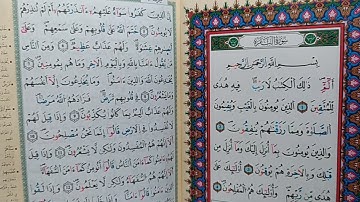 سُورَةُ الْبَقَرَةِ
بِسْمِ اللَّهِ الرَّحْمَٰنِ الرَّحِيمِ
الٓمٓ ذَٰلِكَ الْكِتَٰبُ لَا رَيْبَ فِيهِ هُدًى
لِّلْمُتَّقِينَ الَّذِينَ يُؤْمِنُونَ بِالْغَيْبِ وَيُقِيمُونَ
الصَّلَوٰةَ وَمِمَّا رَزَقْنَٰهُمْ يُنفِقُونَ
وَالَّذِينَ يُؤْمِنُونَ بِمَا أُنزِلَ إِلَيْكَ وَمَا أُنزِلَ مِن
قَبْلِكَ وَبِالْآخِرَةِ هُمْ يُوقِنُونَ أُولَٰئِكَ عَلَىٰ
هُدًى مِّن رَّبِّهِمْ وَأُولَٰئِكَ هُمُ الْمُفْلِحُونَ
إِنَّ الَّذِينَ كَفَرُوا سَوَاءٌ عَلَيْهِمْ ءَأَنذَرْتَهُمْ أَمْ لَمْ تُنذِرْهُمْ
لَا يُؤْمِنُونَ خَتَمَ اللَّهُ عَلَىٰ قُلُوبِهِمْ وَعَلَىٰ سَمْعِهِمْ وَعَلَىٰ
أَبْصَٰرِهِمْ غِشَٰوَةٌ وَلَهُمْ عَذَابٌ عَظِيمٌ وَمِنَ النَّاسِ
مَن يَقُولُ ءَامَنَّا بِاللَّهِ وَبِالْيَوْمِ الْآخِرِ وَمَا هُم بِمُؤْمِنِينَ
يُخَٰدِعُونَ اللَّهَ وَالَّذِينَ ءَامَنُوا وَمَا يَخْدَعُونَ إِلَّا أَنفُسَهُمْ
وَمَا يَشْعُرُونَ فِي قُلُوبِهِم مَّرَضٌ فَزَادَهُمُ اللَّهُ مَرَضًا
وَلَهُمْ عَذَابٌ أَلِيمٌ بِمَا كَانُوا يَكْذِبُونَ وَإِذَا قِيلَ لَهُمْ
لَا تُفْسِدُوا فِي الْأَرْضِ قَالُوا إِنَّمَا نَحْنُ مُصْلِحُونَ
أَلَا إِنَّهُمْ هُمُ الْمُفْسِدُونَ وَلَٰكِن لَّا يَشْعُرُونَ وَإِذَا قِيلَ
لَهُمْ ءَامِنُوا كَمَا ءَامَنَ النَّاسُ قَالُوا أَنُؤْمِنُ كَمَا ءَامَنَ السُّفَهَاءُ
أَلَا إِنَّهُمْ هُمُ السُّفَهَاءُ وَلَٰكِن لَّا يَعْلَمُونَ وَإِذَا لَقُوا